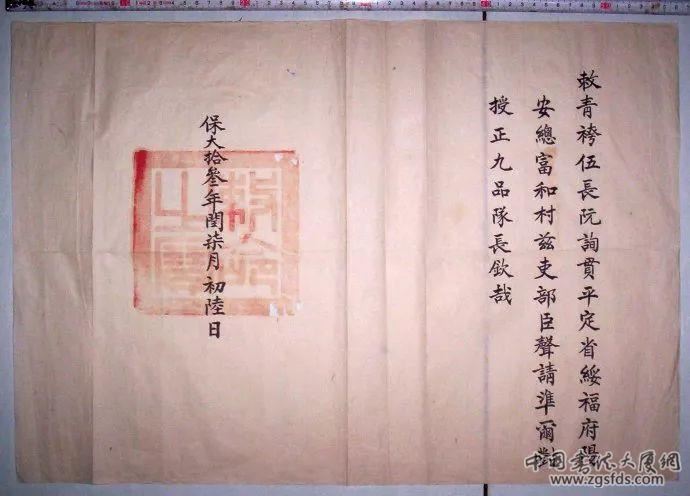 敕青袴伍長阮詢貫平定省綏福府陽
安總富和村茲吏部臣聲請準爾對
授正九品隊長欽哉
保大拾叁年閏柒月初陸日
敕命之寶
中国书法大厦網
www.zgsfds.com